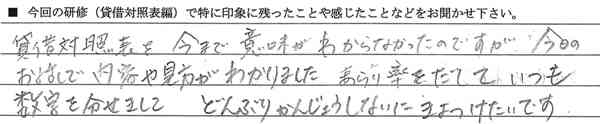 ■ 今回の研修（貸借対照表編）で特に印象に残ったことや感じたことなどをお聞かせ下さい。
貸借対照表を今まで意味がわからなかったのですが 今日の
お話しで内容や見方がわかりました あらり率をだして いつも
数字を合せまして どんぶりかんじょうしないに きをつけたいです